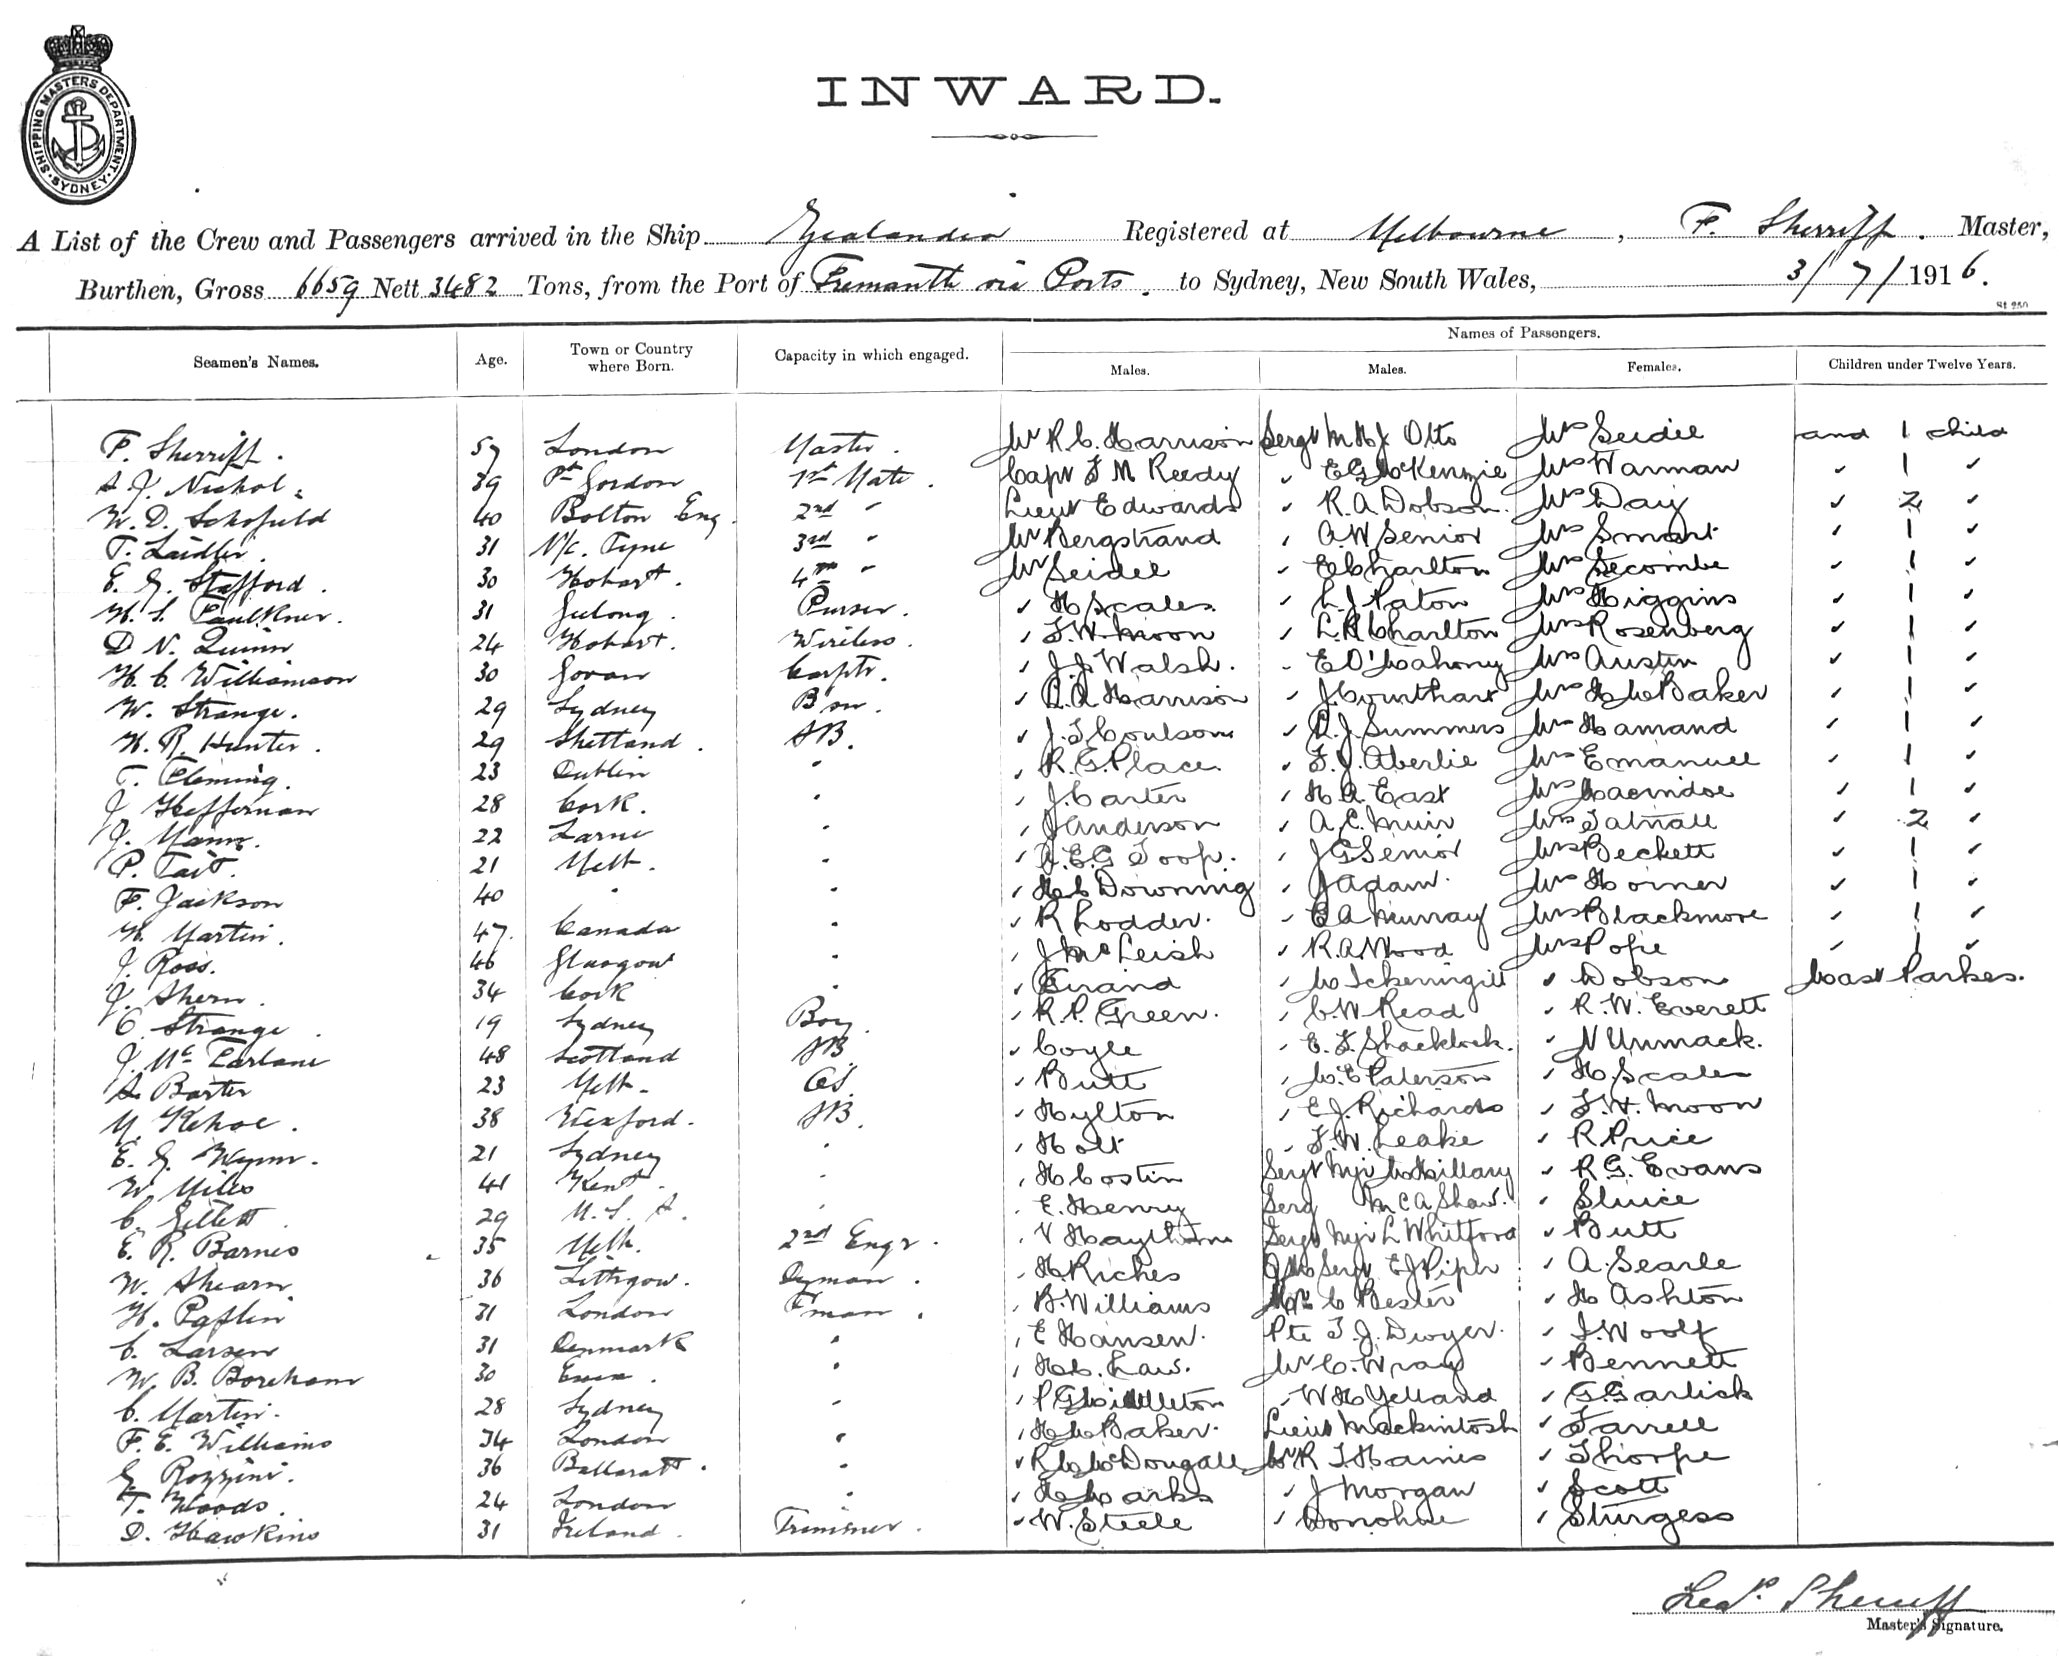 SHIPPING MASTERS DEPARTMENT. SYDNEY.
INWARD.
A List of the Crew and Passengers arrived in the Ship Zealandia Registered at Melbourne, F. Sherriff. Master,
Burthen, Gross 6659 Nett 3482 Tons, from the Port of Fremantle via Ports. to Sydney, New South Wales, 3/7/1916.
St 250
Names of Passengers.
Seamen's Names. Age. Town or Country where Born. Capacity in which engaged. Males. Males. Females. Children under Twelve Years.
F. Sherriff. 57 London Master. Mr R. C. Harrison Sergt M H J Otto Mrs Seidel and 1 child
A J. Nichol. 39 Pt Gordon 1st Mate. Capt F M Reedy " E G McKenzie Mrs Warman " 1 "
W. D. Schofield 40 Bolton Eng. 2nd " Lieut Edwards " R. A Dobson. Mrs Day " 2 "
T. Laidler. 31 N/c. Tyne 3rd " Mr Bergstrand " A. W Senior Mrs Smart " 1 "
E. G. Stafford. 30 Hobart. 4th " Mr Seidel " E C Charlton Mrs Secombe " 1 "
H. S. Faulkner. 31 Geelong. Purser. " H Scales " L. J. Paton Mrs Higgins " 1 "
D N. Quinn 24 Hobart. Wireless. " F. W. Moon " L. R Charlton Mrs Rosenberg " 1 "
H. C. Williamson 30 Govan Carptr. " J. J. Walsh. " E O'Mahony Mrs Austin " 1 "
W. Strange. 29 Sydney B'sn. " L. A Harrison " J. Courthart Mrs H M Baker " 1 "
H. R. Hunter. 29 Shetland. AB. " J. F Coulson " R. J. Summers Mrs Hamand " 1 "
T. Fleming. 23 Dublin " " R. G. Place. " F. J. Aberlie Mrs Emanuel " 1 "
J. Heffernan 28 Cork. " " J. Carter " H. A. East Mrs Macindoe " 1 "
J. Mann. 22 Larne " " J Anderson " A. E. Muir Mrs Tatnall " 2 "
P. Tait. 21 Melb. " " A. E. G Toop. " J G Senior Mrs Beckett " 1 "
F. Jackson 40 " " " H. C Downing " J Adam. Mrs Horner " 1 "
H. Martin. 47. Canada " " R Lodder. " E A Murray Mrs Blackmore " 1 "
J. Ross. 46 Glasgow " " J McLeish " R. A Wood Mrs Pope " 1 "
J. Ahern. 34 Cork " " Girand " M Ickeringill " Dobson Mast Parkes.
C. Strange. 19 Sydney Boy. " R. P. Green. " C. W Read " R. W. Everett
J. McFarlane 48 Scotland AB " Coyle " E. F. Shacklock. " N Unmack.
A. Barter 23 Melb. OS. " Butt " W. E Paterson " H Scales
M. Kehoe. 38 Wexford. AB. " Hylton " E J. Richards " F. W. Moon
E. G. Wynn. 21 Sydney " " Holt " F. W. Leake " R Price
W. Miles 41 Kent. " " H Costin Sergt Mjr M Hillary " R. G. Evans
C. Gillett 29 U. S. A. " " E. Henry Serg McA Shaw. " Sluice
E. R. Barnes 35 Melb. 2nd Engr. " V Haythorne Sergt Mjr L Whitford " Butt
W. Ahearn. 36 Lithgow. Oyman. " H. Riches Q M Sergt E J Piper " A. Searle
H. Paflin 31 London F'man. " B. Williams C Bester " H Ashton
C. Larsen 31 Denmark " " E Hansen. Pte T. J. Dwyer. " I. Woolf
W. B. Boreham 30 Essex. " " H. C. Law. Mr C. Wray " Bennett
C. Martin. 28 Sydney " " P G Middleton " W H Yelland " G. Garlick
F. E. Williams 34 London " " H M Baker. Lieut Mackintosh " Farrell
G Rozzini. 36 Ballaratt. " " R M McDougall Mr R T. Haines " Thorpe
T. Woods. 24 London " " H Marks " J Morgan " Scott
D. Hawkins 31 Ireland. Trimmer. " W. Steele " Donohue " Sturgess
Fredk. Sherriff
Master's Signature.